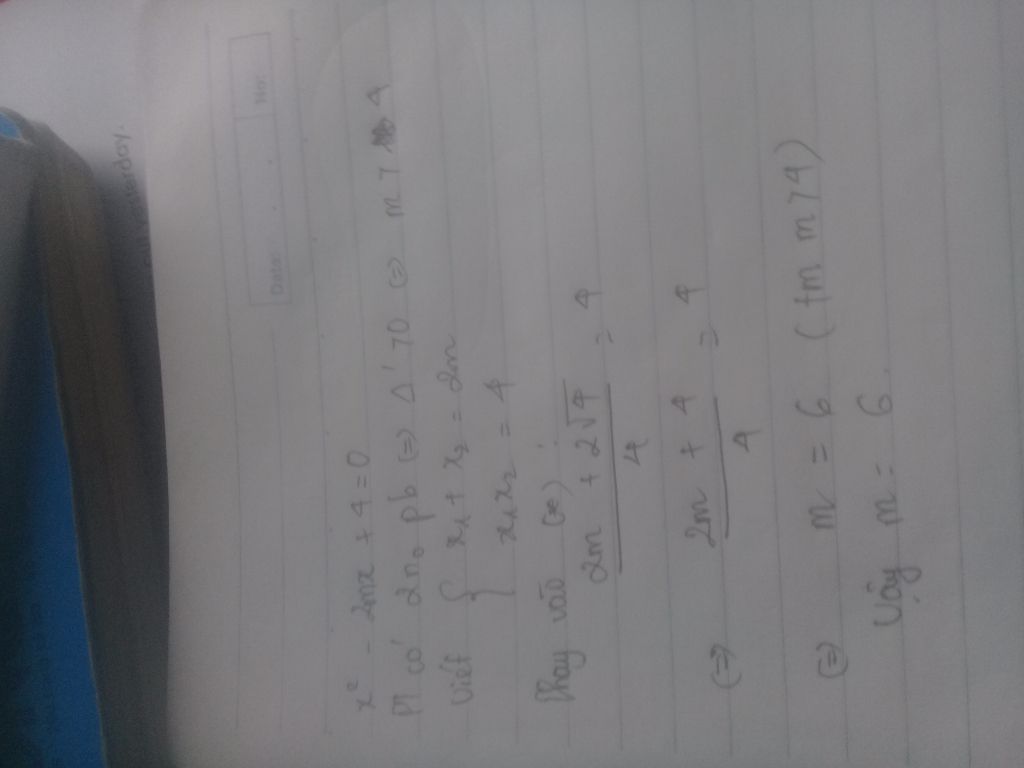 Date:
No:
x² - 2mx + 4 = 0
Pt có 2 no pb (=) Δ' > 0 (=) m > 4
Viét { x₁ + x₂ = 2m
x₁x₂ = 4
Thay vào (*) :
2m + 2√4 / 4 = 4
(=) 2m + 4 / 4 = 4
(=) m = 6 (tm m > 4)
Vậy m = 6.